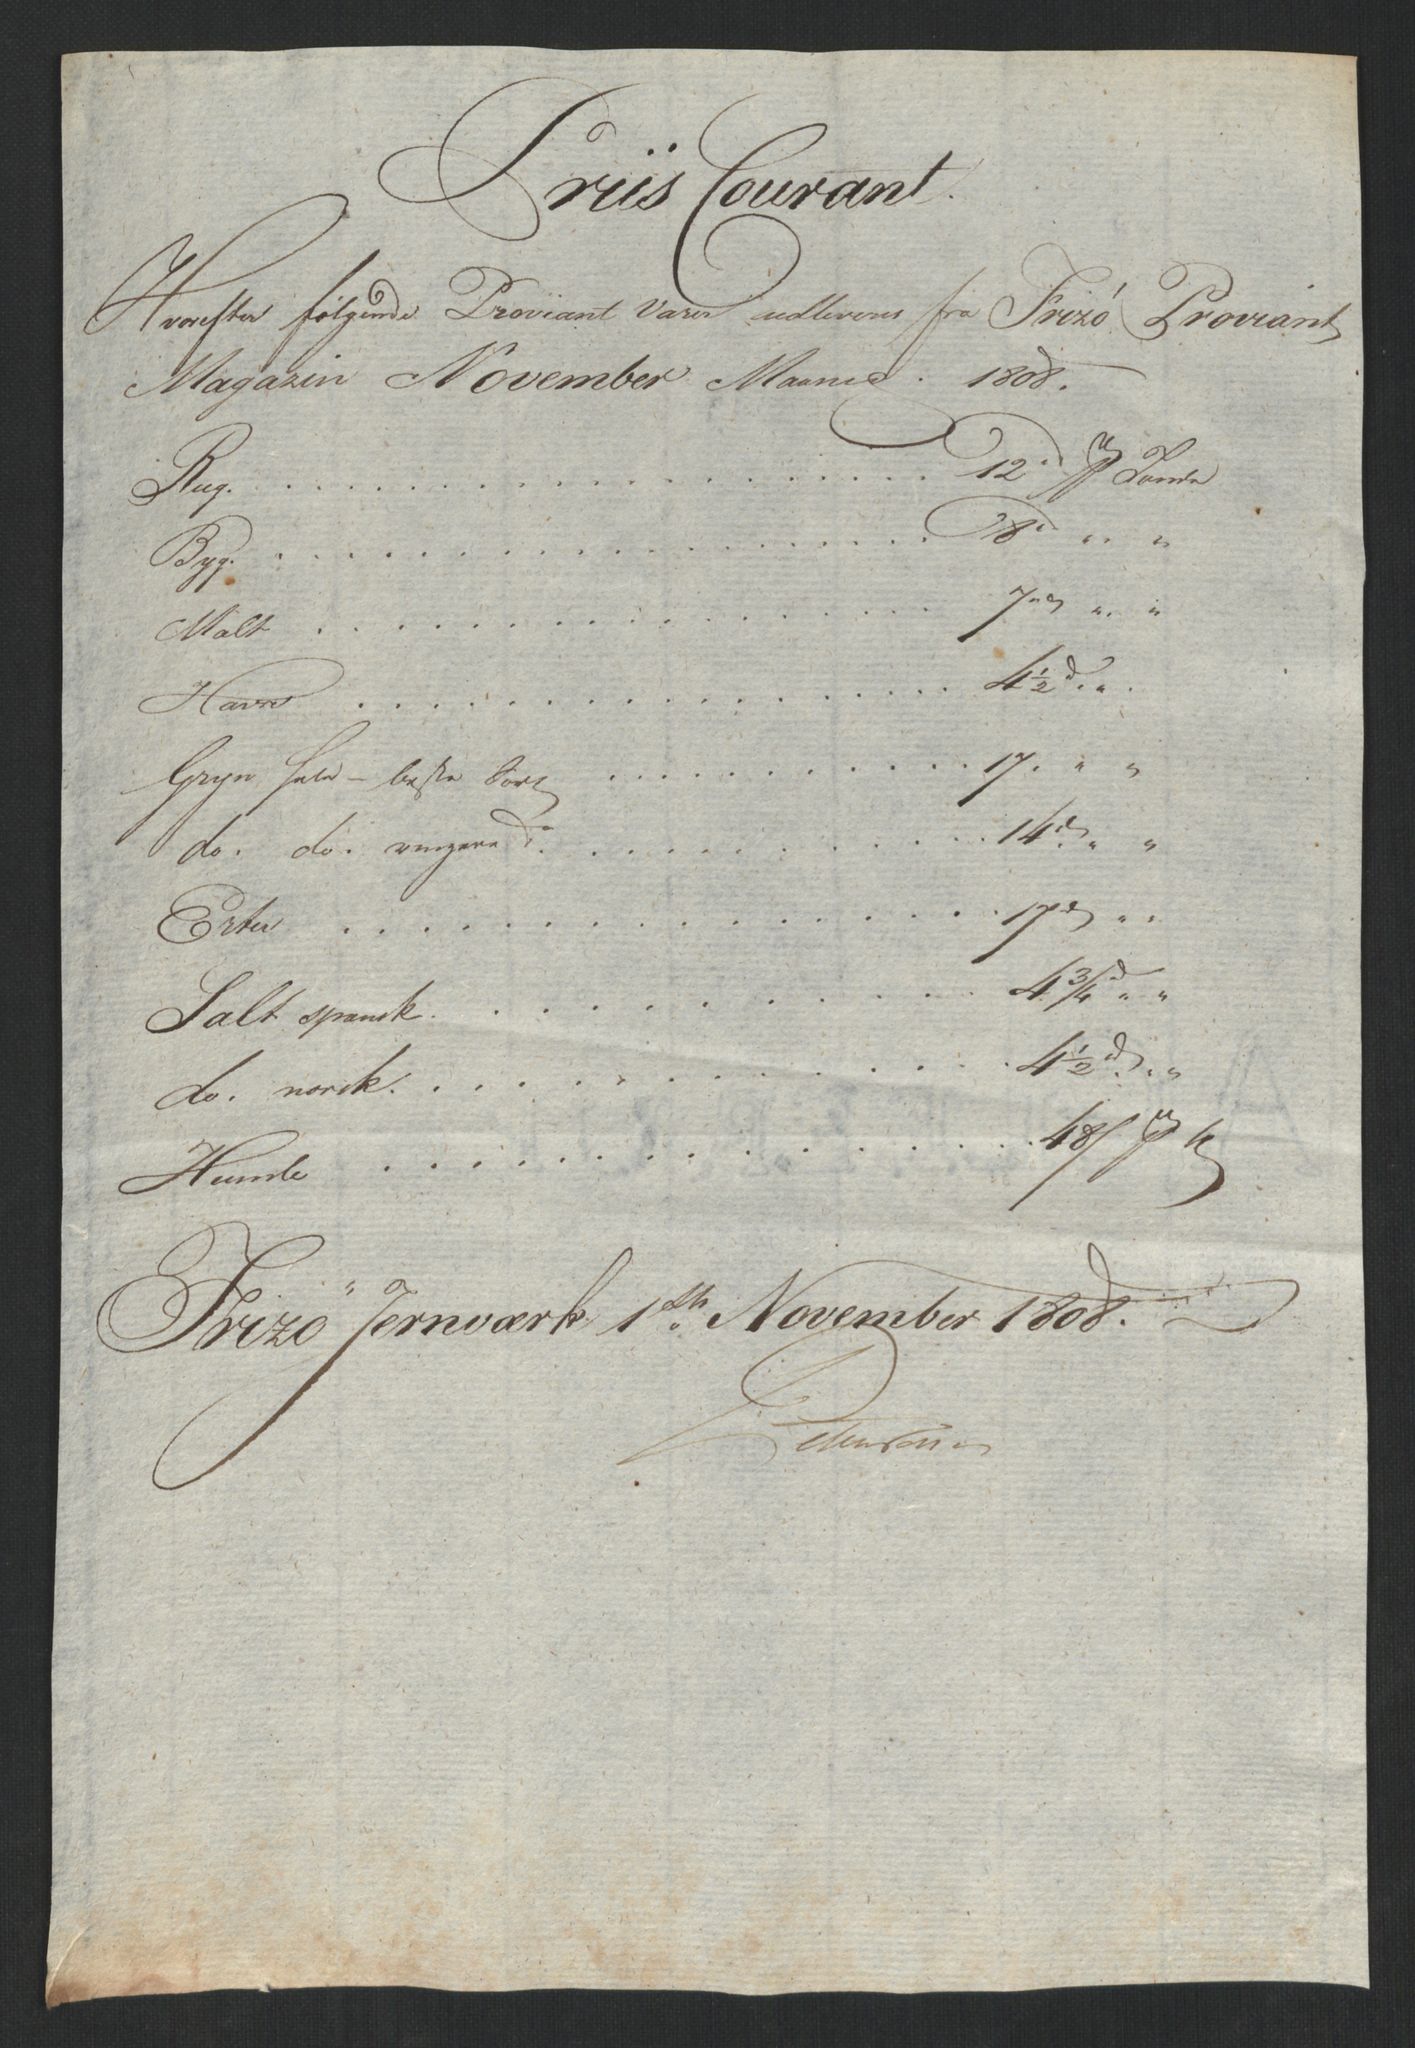 Priis Courant.
Hvorefter følgende Proviant Varer udleveres fra Frizö Proviant
Magazin November Maaned. 1808.
Rug. . . . . . . . . . 12 rd pr Tønde
Byg. . . . . . . . . . 8 rd " "
Malt . . . . . . . . . . 7 rd " "
Havre . . . . . . . . . . 4½ rd " "
Gryn hele – beste Sort . . . . . . . . . . 17. " "
do. do. ringere do. . . . . . . . . . 14 rd " "
Erter . . . . . . . . . . 17 rd " "
Salt spansk. . . . . . . . . . 4 3/4 rd " "
do. norsk. . . . . . . . . . 4½ rd " "
Humle . . . . . . . . . . 48 s pr
Frizö Jernværk 1th November 1808.